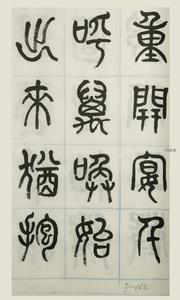 重開宴千
呼萬喚始
出來猶抱